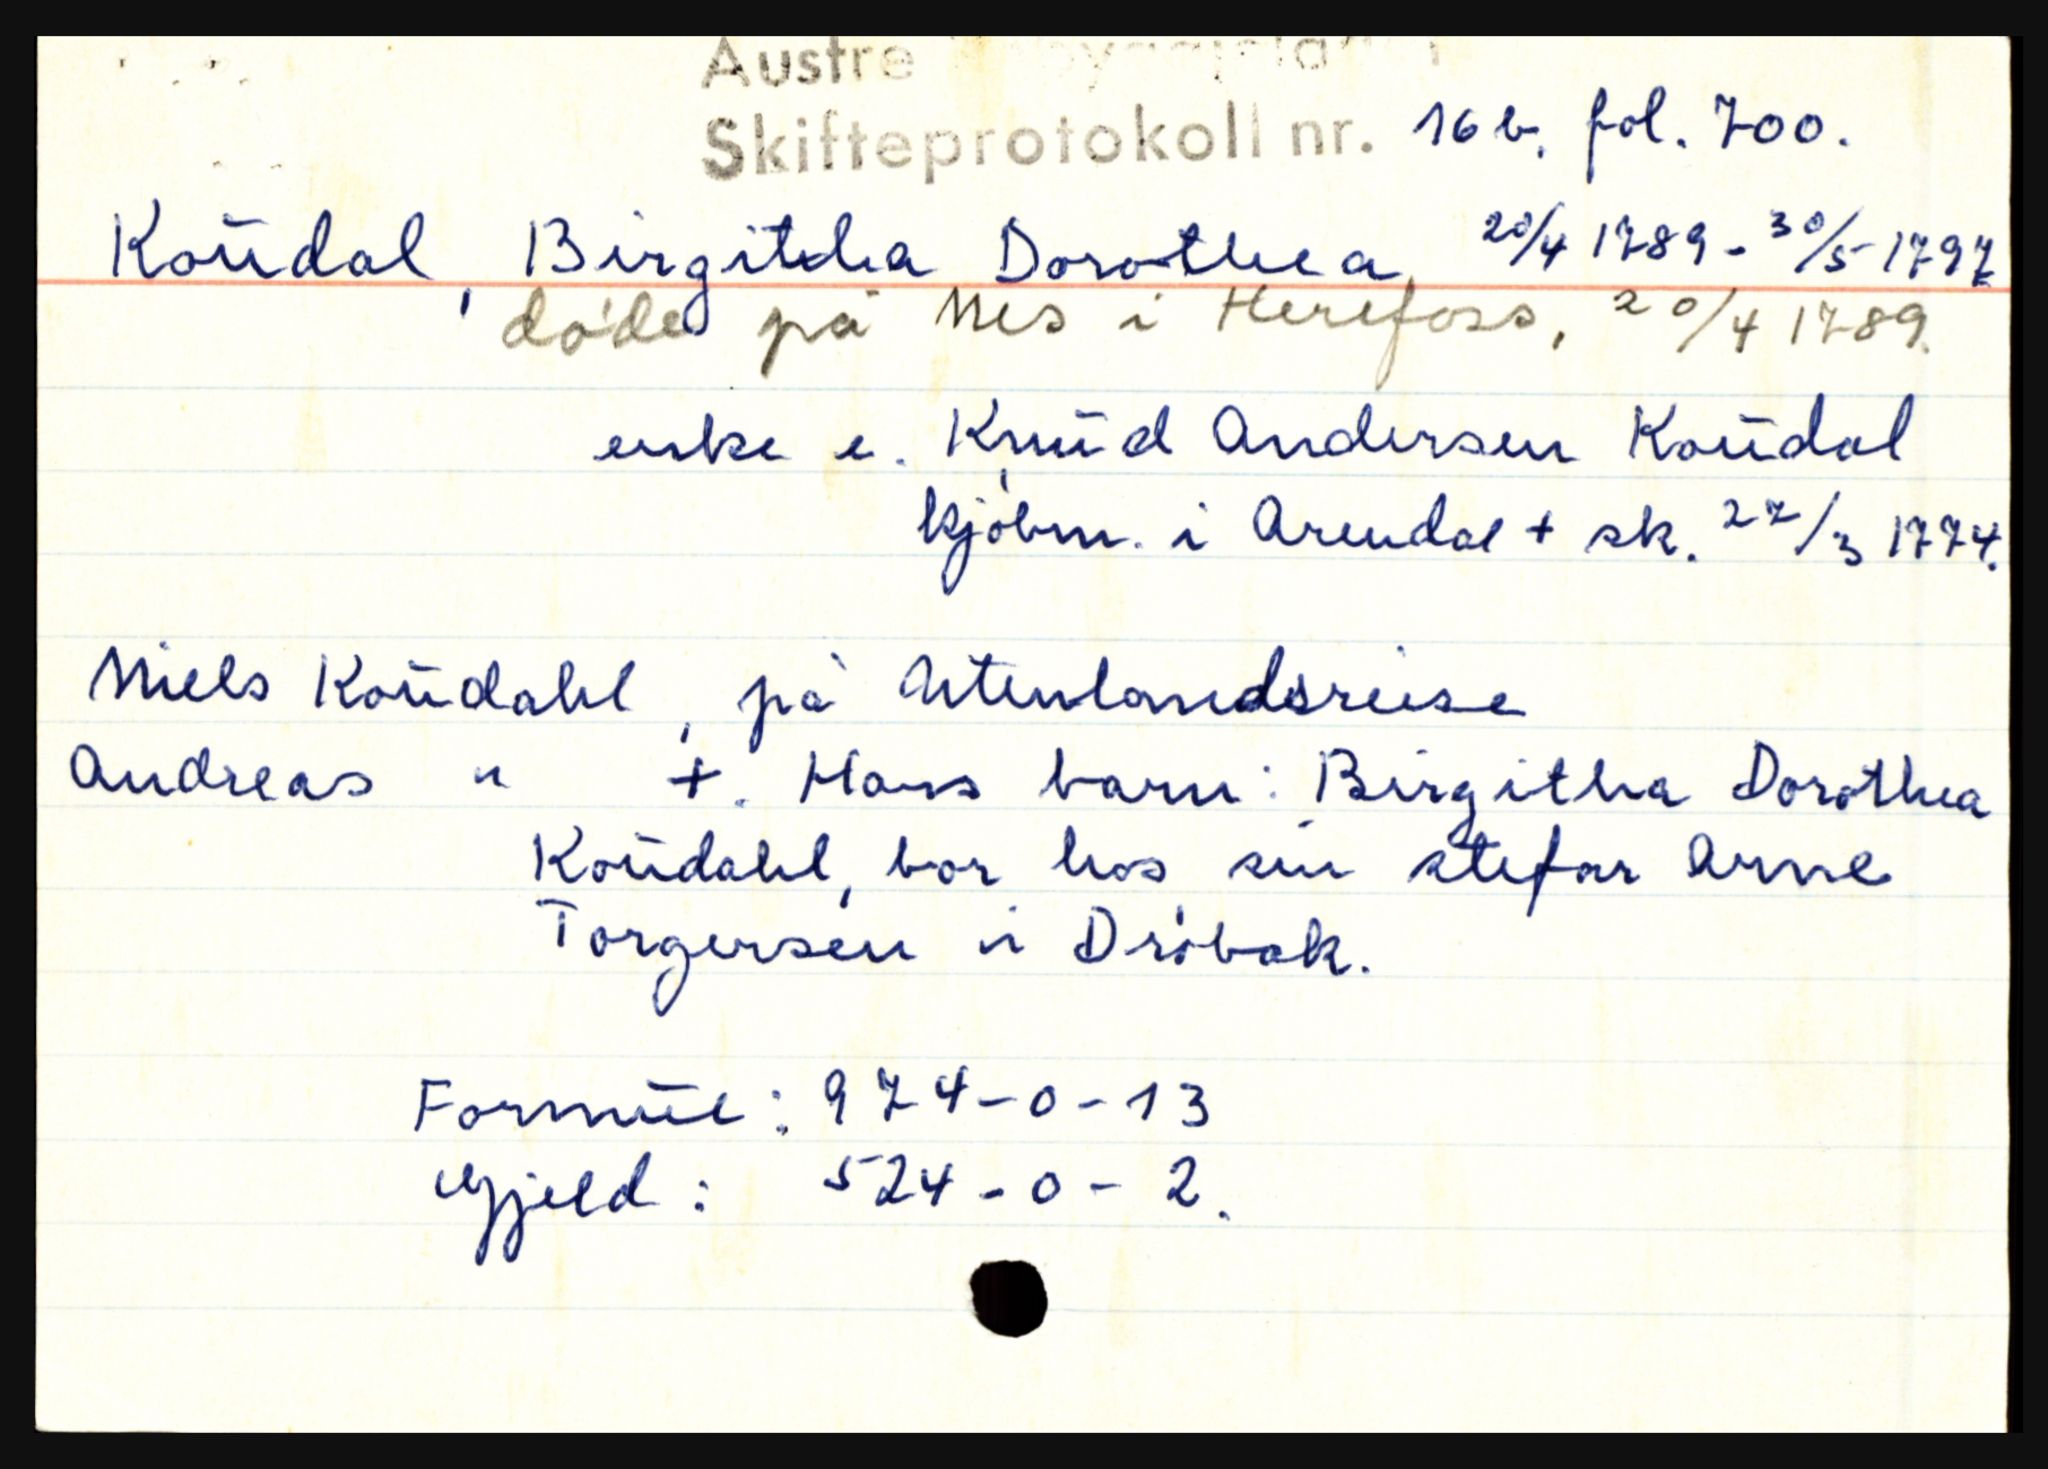 Austre
Skifteprotokoll nr. 16 b, fol. 700.
Koudal, Birgitha Dorothea 20/4 1789 - 30/5 1797
døde på Nes i Herefoss, 20/4 1789.
enke e. Knud Andersen Koudal
kjøbm. i Arendal + sk. 27/3 1774.
Niels Koudahl, på Utenlandsreise
Andreas " +. Hans barn: Birgitha Dorothea
Koudahl, bor hos sin stefar Arne
Torgersen i Drøbak.
Formue: 974-0-13
Gjeld: 524-0-2.